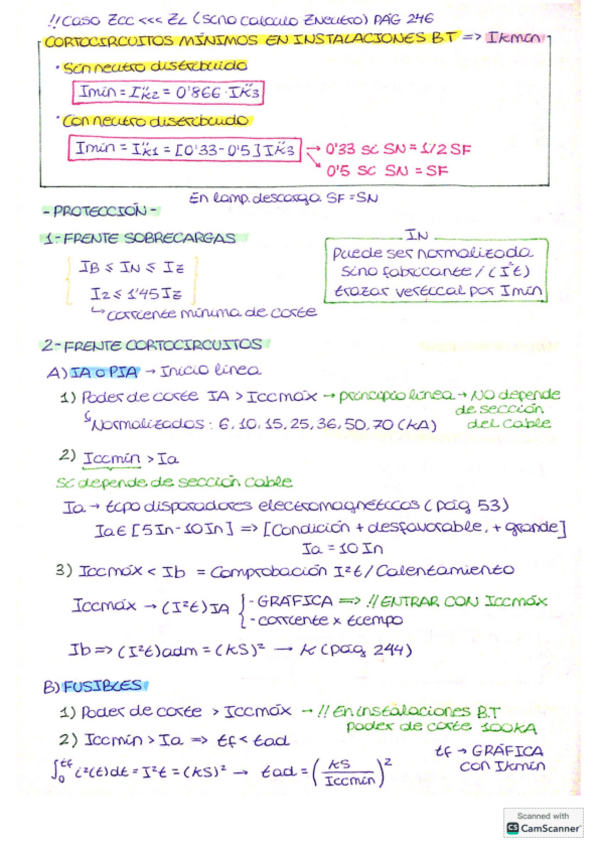 !! Caso Zcc <<< ZL (sino calculo Zneutro) PÁG 246
CORTOCIRCUITOS MÍNIMOS EN INSTALACIONES BT => Ikmin
· Sin neutro distribuido
Imin = I"k2 = 0'866 · I"k3
· Con neutro distribuido
Imin = I"k1 = [0'33 - 0'5] I"k3 → 0'33 si SN = 1/2 SF
0'5 si SN = SF
En lamp. descarga SF = SN
- PROTECCIÓN -
1- FRENTE SOBRECARGAS
IB ≤ IN ≤ Iz
I2 ≤ 1'45 Iz
↳ corriente mínima de corte
IN
Puede ser normalizada
sino fabricante / (I²t)
trazar vertical por Imin
2- FRENTE CORTOCIRCUITOS
A) IA o PIA → Inicio línea
1) Poder de corte IA > Iccmáx → principio línea → NO depende
de sección
del cable
↳ Normalizados: 6, 10, 15, 25, 36, 50, 70 (kA)
2) Iccmin > Ia
Si depende de sección cable
Ia → tipo disparadores electromagnéticos (pág 53)
Ia ∈ [5In - 10In] => [Condición + desfavorable, + grande]
Ia = 10 In
3) Iccmáx < Ib = Comprobación I²t / Calentamiento
Iccmáx → (I²t)IA { - GRÁFICA => !! ENTRAR CON Iccmáx
- corriente x tiempo
Ib => (I²t)adm = (kS)² → k (pág 244)
B) FUSIBLES
1) Poder de corte > Iccmáx → !! En instalaciones B.T
poder de corte 100kA
2) Iccmin > Ia => tf < tad
tf → GRÁFICA
con Ikmin
∫₀^tf i²(t)dt = I²t = (kS)² → tad = (kS / Iccmin)²
Scanned with
CS CamScanner